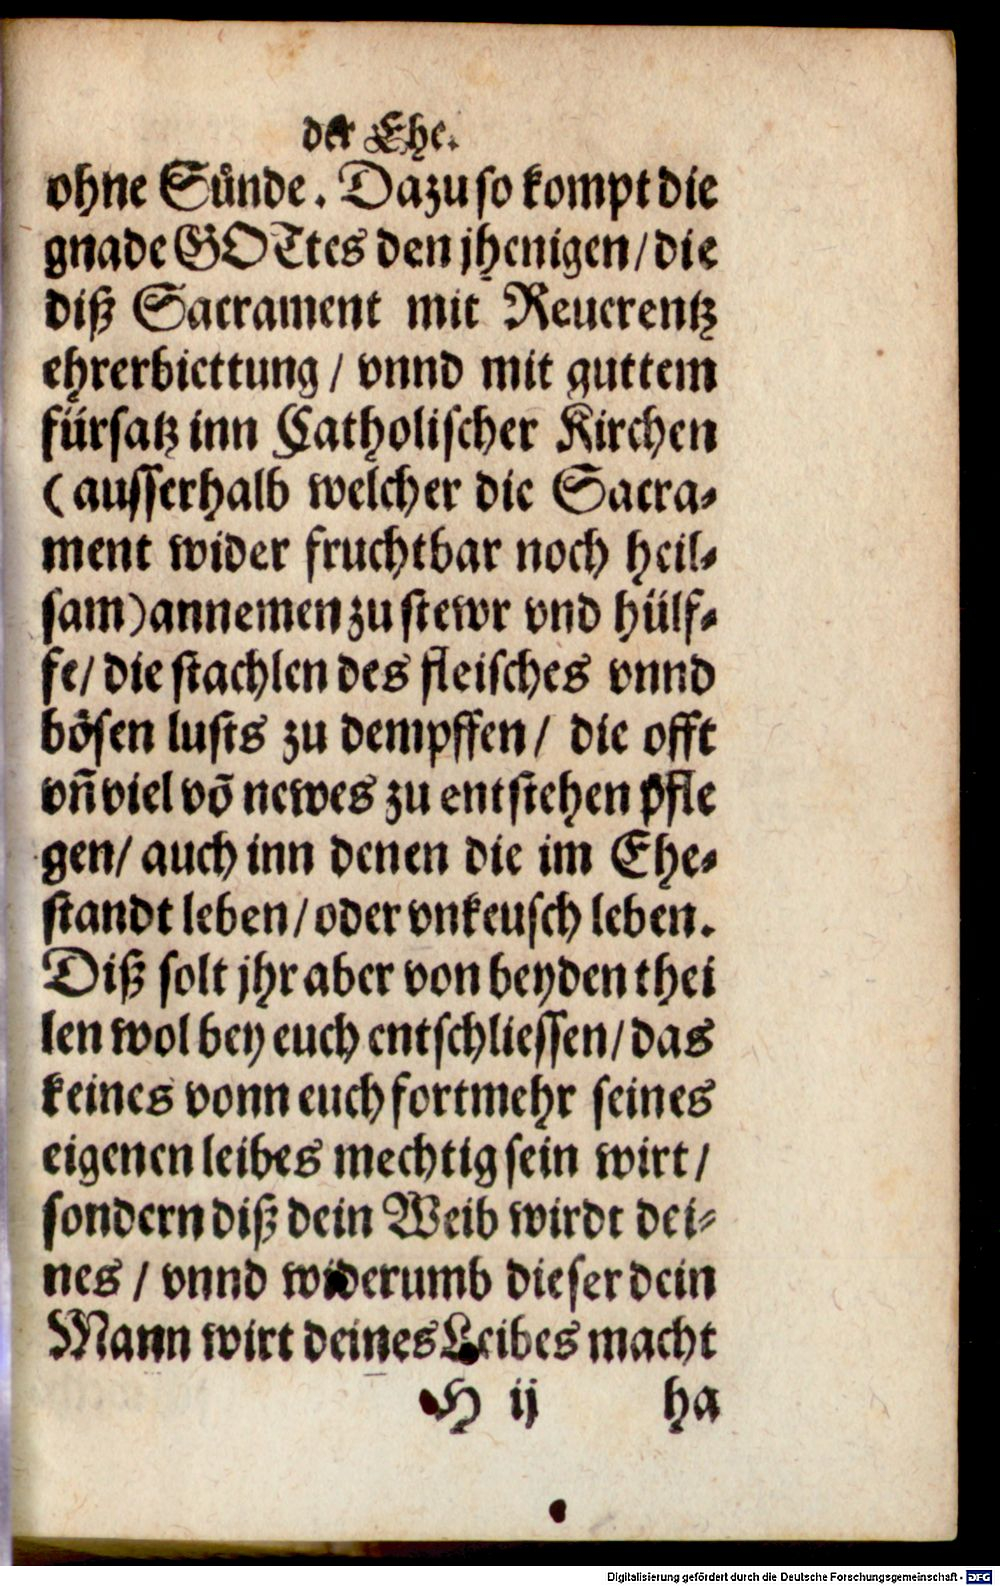 der Ehe.
ohne Sünde. Dazu so kompt die
gnade GOTtes den jhenigen / die
diß Sacrament mit Reuerentz
ehrerbiettung / vnnd mit guttem
fürsatz inn Catholischer Kirchen
(ausserhalb welcher die Sacra-
ment wider fruchtbar noch heil-
sam) annemen zu stewr vnd hülf-
fe / die stachlen des fleisches vnnd
bösen lusts zu dempffen / die offt
vñ viel võ newes zu entstehen pfle
gen / auch inn denen die im Ehe-
standt leben / oder vnkeusch leben.
Diß solt jhr aber von beyden thei
len wol bey euch entschliessen / das
keines vonn euch fortmehr seines
eigenen leibes mechtig sein wirt /
sondern diß dein Weib wirdt dei-
nes / vnnd widerumb dieser dein
Mann wirt deines Leibes macht
H ij ha
Digitalisierung gefördert durch die Deutsche Forschungsgemeinschaft - DFG